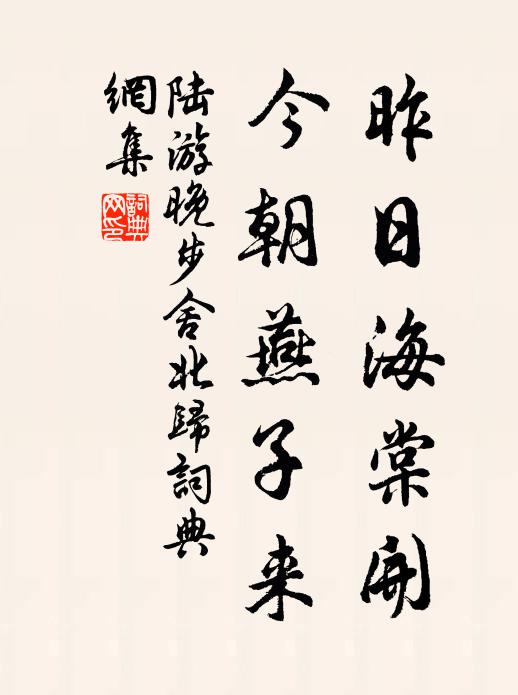 昨日海棠開
今朝燕子来
陆游晚步舍北歸詞典
網集
詞典网印